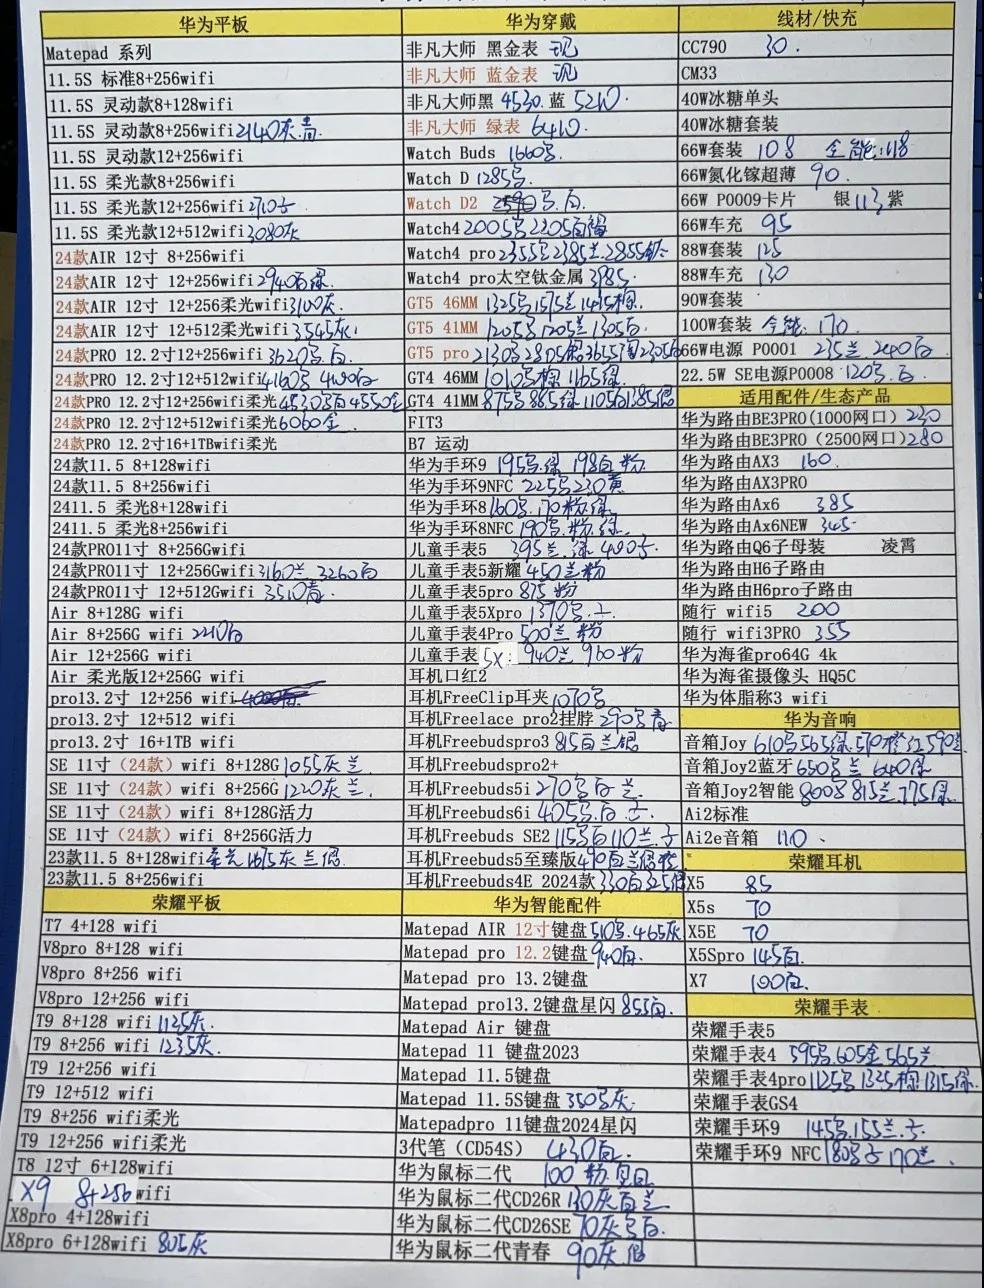 华为平板
Matepad 系列
11.5S 标准8+256wifi
11.5S 灵动款8+128wifi
11.5S 灵动款8+256wifi 2140灰.青
11.5S 灵动款12+256wifi
11.5S 柔光款8+256wifi
11.5S 柔光款12+256wifi
11.5S 柔光款12+512wifi 3080灰
24款AIR 12寸 8+256wifi
24款AIR 12寸 12+256wifi 2940百绿
24款AIR 12寸 12+256柔光wifi 3100灰.
24款AIR 12寸 12+512柔光wifi 3545灰
24款PRO 12.2寸12+256wifi 3620
24款PRO 12.2寸12+512wifi 4160
24款PRO 12.2寸12+256wifi柔光 4550金
24款PRO 12.2寸12+512wifi柔光 6060金.
24款PRO 12.2寸16+1TBwifi柔光
24款11.5 8+128wifi
24款11.5 8+256wifi
2411.5 柔光8+128wifi
2411.5 柔光8+256wifi
24款PRO11寸 8+256Gwifi
24款PRO11寸 12+256Gwifi 3160兰 3260百
24款PRO11寸 12+512Gwifi 3510青.
Air 8+128G wifi
Air 8+256G wifi 2210百
Air 12+256G wifi
Air 柔光版12+256G wifi
pro13.2寸 12+256 wifi
pro13.2寸 12+512 wifi
pro13.2寸 16+1TB wifi
SE 11寸（24款）wifi 8+128G 1055灰 兰.
SE 11寸（24款）wifi 8+256G 1220灰 兰.
SE 11寸（24款）wifi 8+128G活力
SE 11寸（24款）wifi 8+256G活力
23款11.5 8+128wifi 柔光1675灰 兰 银.
23款11.5 8+256wifi
荣耀平板
T7 4+128 wifi
V8pro 8+128 wifi
V8pro 8+256 wifi
V8pro 12+256 wifi
T9 8+128 wifi 1125灰.
T9 8+256 wifi 1235灰.
T9 12+256 wifi
T9 12+512 wifi
T9 8+256 wifi柔光
T9 12+256 wifi柔光
T8 12寸 6+128wifi
X9 8+256wifi
X8pro 4+128wifi
X8pro 6+128wifi 805灰
华为穿戴
非凡大师 黑金表 现
非凡大师 蓝金表 现
非凡大师黑 4530. 蓝 5210.
非凡大师 绿表 6410.
Watch Buds 1660
Watch D 1285
Watch D2
Watch4 2005 2205
Watch4 pro 2355 2385兰.2855
Watch4 pro太空钛金属 3985.
GT5 46MM 1325 1575兰 1415棕.
GT5 41MM 1205 1205兰 1305百.
GT5 pro 2130
GT4 46MM 1010 棕 1165绿.
GT4 41MM 875 865绿 1105白1385银
FIT3
B7 运动
华为手环9 195 .绿 198百 粉.
华为手环9NFC 225 230黄
华为手环8 160 .170粉.绿.
华为手环8NFC 190 .粉.绿.
儿童手表5 395兰.绿
儿童手表5新耀 450兰粉
儿童手表5pro 875 粉
儿童手表5Xpro 1370
儿童手表4Pro 500兰 粉
儿童手表5X: 940兰 960粉
耳机口红2
耳机FreeClip耳夹 1070
耳机Freelace pro2挂脖 290 青
耳机Freebudspro3 815百兰银
耳机Freebudspro2+
耳机Freebuds5i 270 百 兰.
耳机Freebuds6i 405
耳机Freebuds SE2 115 百110兰.
耳机Freebuds5至臻版 490百兰银
耳机Freebuds4E 2024款 330百325银
华为智能配件
Matepad AIR 12寸键盘 510 .465灰
Matepad pro 12.2键盘 940百.
Matepad pro 13.2键盘
Matepad pro13.2键盘星闪 855百.
Matepad Air 键盘
Matepad 11 键盘2023
Matepad 11.5键盘
Matepad 11.5S键盘 350 灰.
Matepadpro 11键盘2024星闪
3代笔（CD54S） 430百.
华为鼠标二代 100 粉
华为鼠标二代CD26R 130灰百兰
华为鼠标二代CD26SE 70灰 百.
华为鼠标二代青春 90灰.银
线材/快充
CC790 30.
CM33
40W冰糖单头
40W冰糖套装
66W套装 108 全能:118
66W氮化镓超薄 90.
66W P0009卡片 银 113 紫
66W车充 95
88W套装 125
88W车充 130
90W套装
100W套装 全能:170.
66W电源 P0001 235兰 240百
22.5W SE电源P0008 120 .百.
适用配件/生态产品
华为路由BE3PRO(1000网口) 230
华为路由BE3PRO（2500网口) 280
华为路由AX3 160.
华为路由AX3PRO
华为路由Ax6 385
华为路由Ax6NEW 345-
华为路由Q6子母装 凌霄
华为路由H6子路由
华为路由H6pro子路由
随行 wifi5 200
随行 wifi3PRO 355
华为海雀pro64G 4k
华为海雀摄像头 HQ5C
华为体脂称3 wifi
华为音响
音箱Joy 610 565绿.570橙红590兰
音箱Joy2蓝牙 650 兰 640绿
音箱Joy2智能 800 815兰.775绿.
Ai2标准
Ai2e音箱 110 、
荣耀耳机
X5 85
X5s 70
X5E 70
X5Spro 145百.
X7 190百.
荣耀手表
荣耀手表5
荣耀手表4 595 .605金 565兰
荣耀手表4pro 1125 1325棕1315绿.
荣耀手表GS4
荣耀手环9 145 .155兰.
荣耀手环9 NFC 180 170兰.